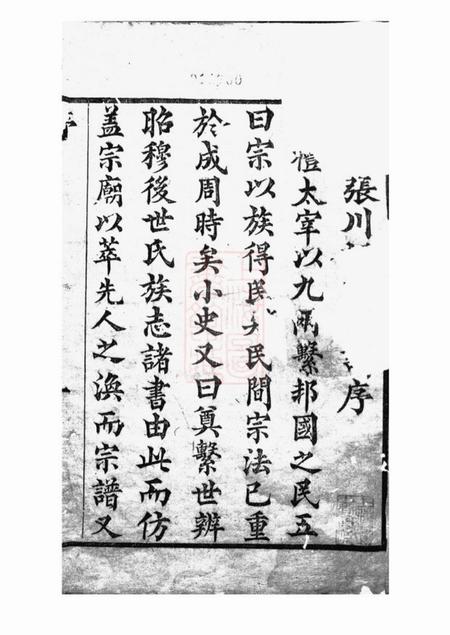 張川序
禮太宰以九兩繫邦國之民五
曰宗以族得民夫民間宗法已重
於成周時矣小史又曰奠繫世辨
昭穆後世氏族志諸書由此而仿
蓋宗廟以萃先人之渙而宗譜又